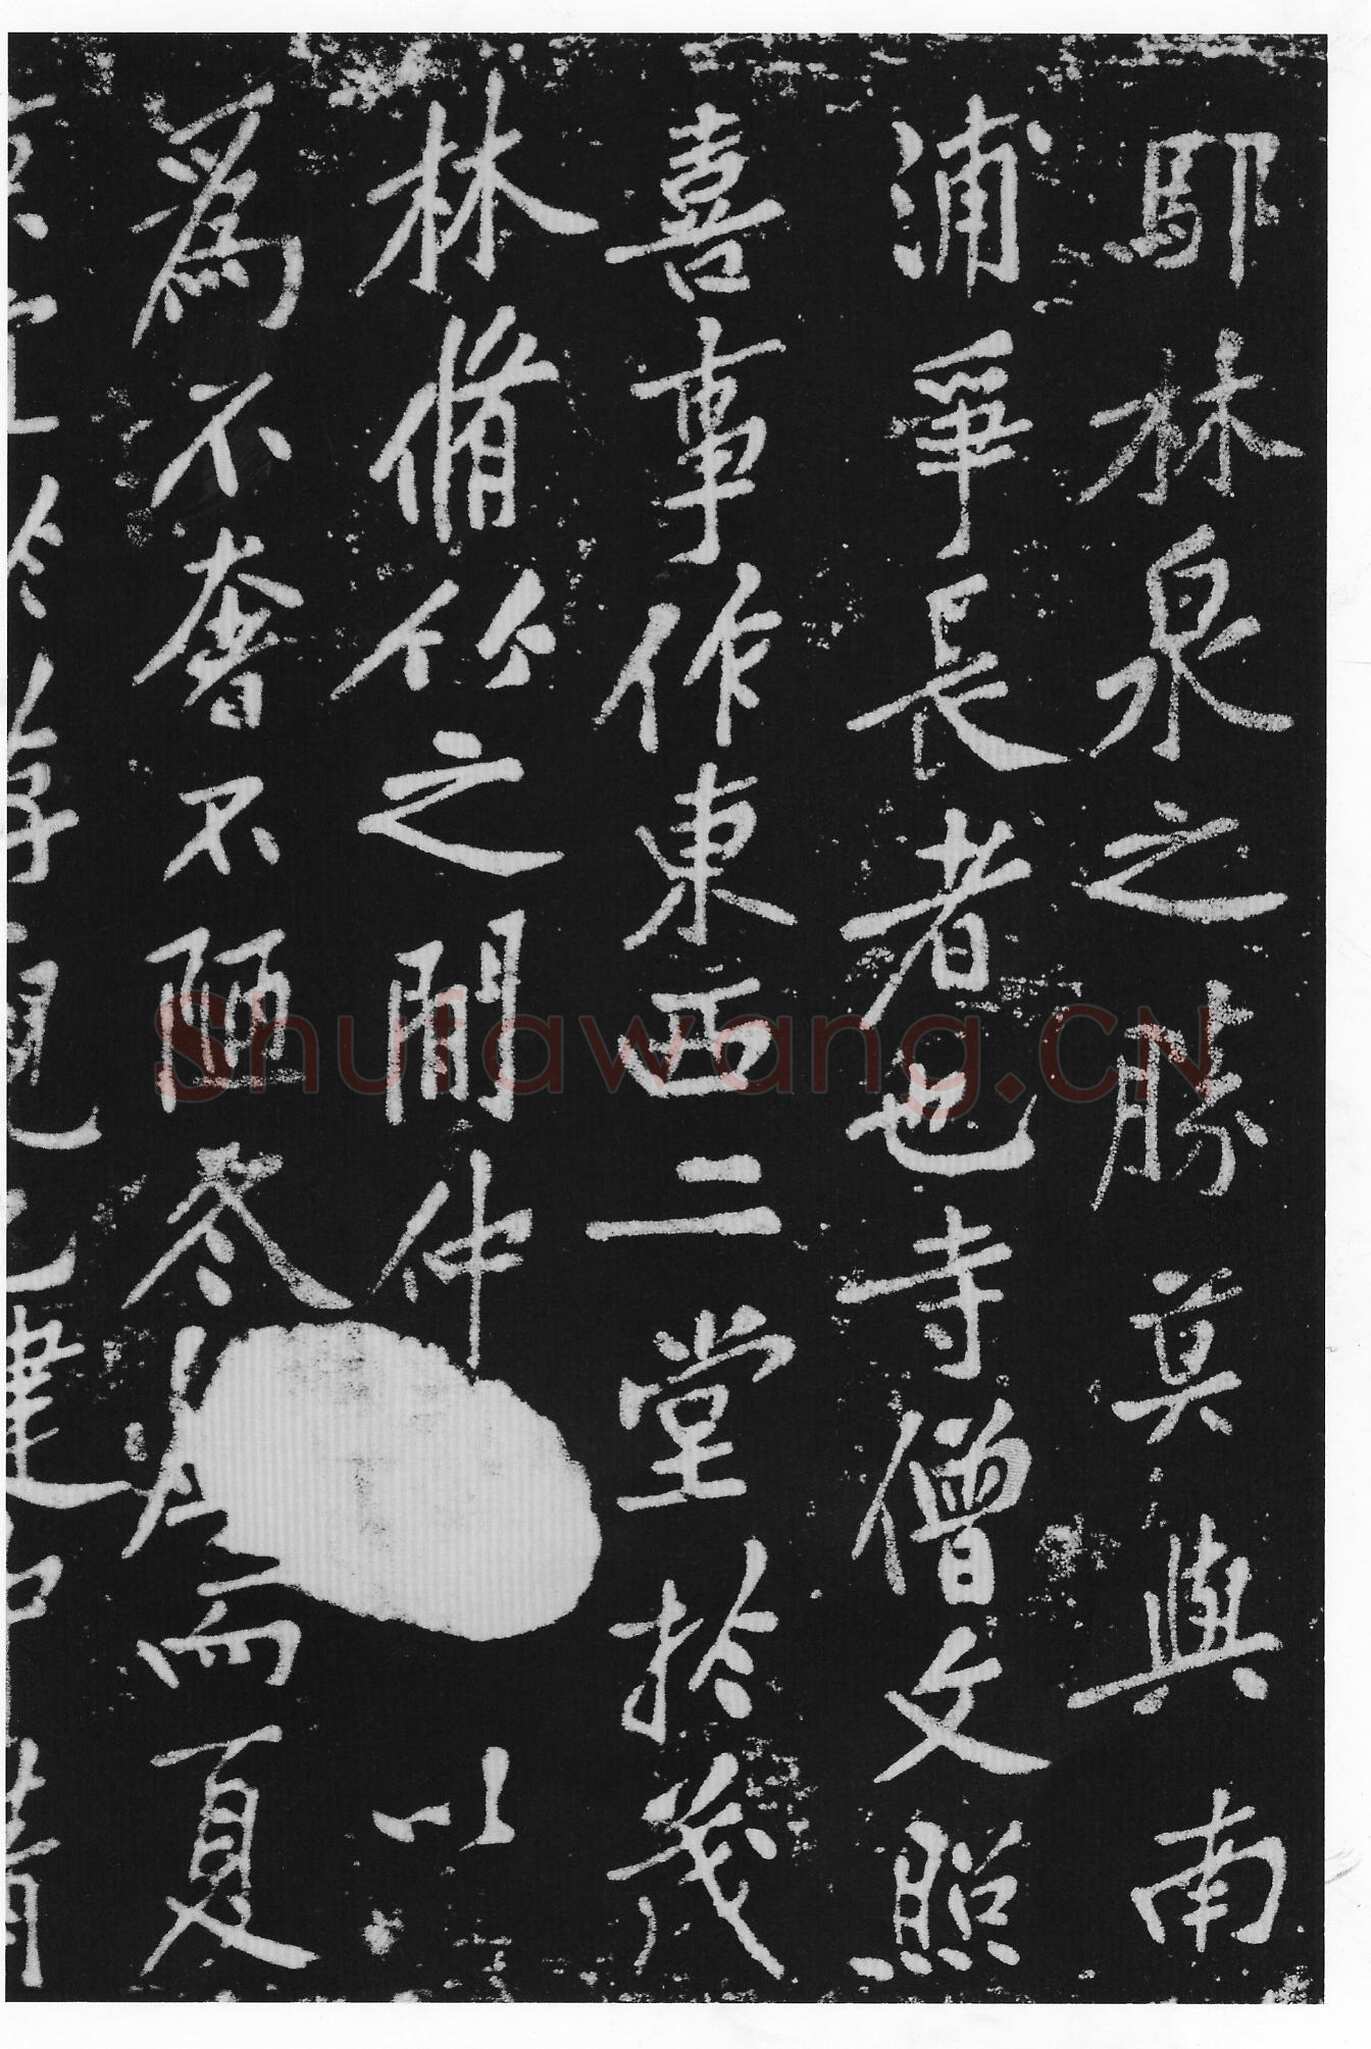 鄢林泉之勝莫與南
浦爭長者也寺僧文照
喜事作東西二堂於茂
林脩竹之間仲以
為不奢不陋冬而夏
Shufawang.CN